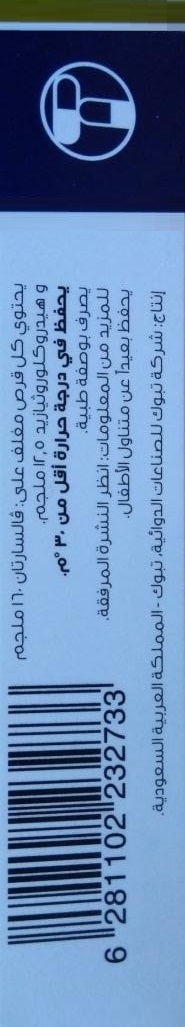 يحتوي كل قرص مغلف على: ڤالسارتان ١٦٠ ملجم
و هيدروكلوروثيازيد ١٢,٥ ملجم.
يحفظ في درجة حرارة أقل من ٣٠ °م.
يصرف بوصفة طبية.
للمزيد من المعلومات: انظر النشرة المرفقة.
يحفظ بعيداً عن متناول الأطفال.
إنتاج: شركة تبوك للصناعات الدوائية، تبوك - المملكة العربية السعودية.
6 281102 232733